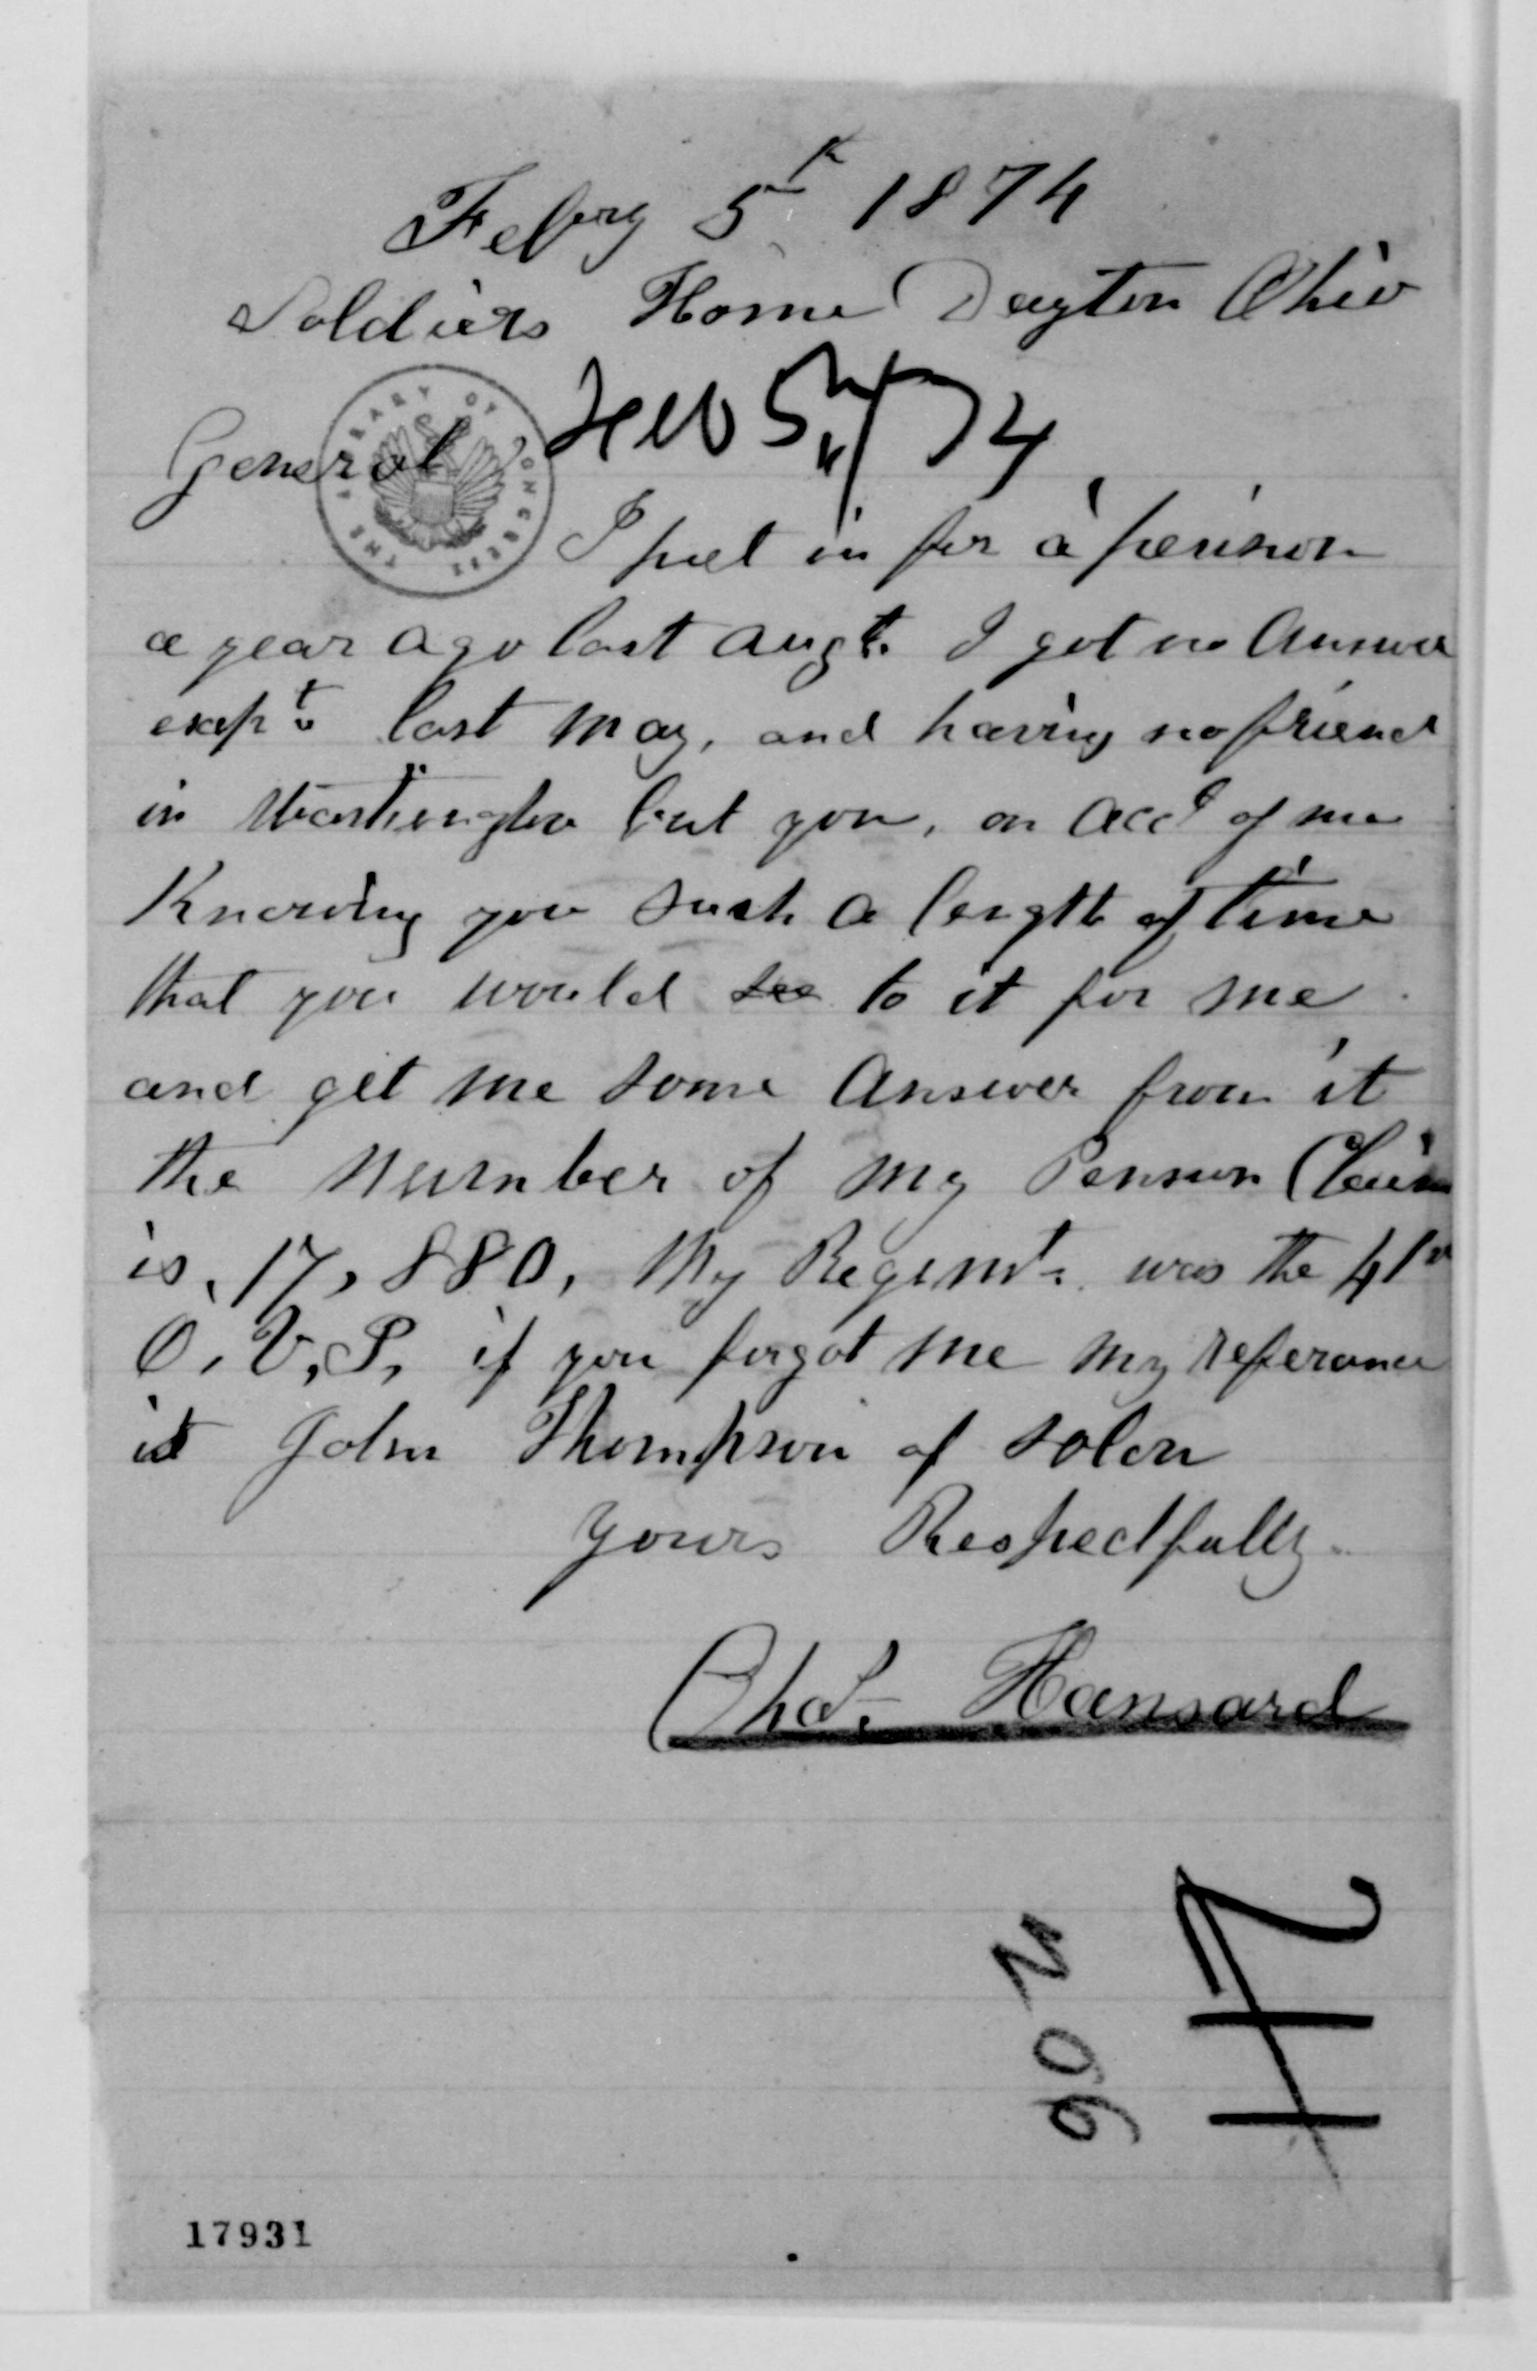 Febry 5th 1874
Soldiers Home Dayton Ohio
Feb 5th/74
General
THE LIBRARY OF CONGRESS
I put in for a pension
a year ago last Augt. I got no Answer
exept last May, and having no friend
in Washington but you, on acct of me
Knowing you such a length of time
that you would see to it for me
and get me some Answer from it
the Number of my Pension Claim
is, 17,880, My Regimt. was the 41st
O. V. I, if you forgot me my referance
is John Thompson of Solon
Yours Respectfully
Chas. Hansard
H
206
17931